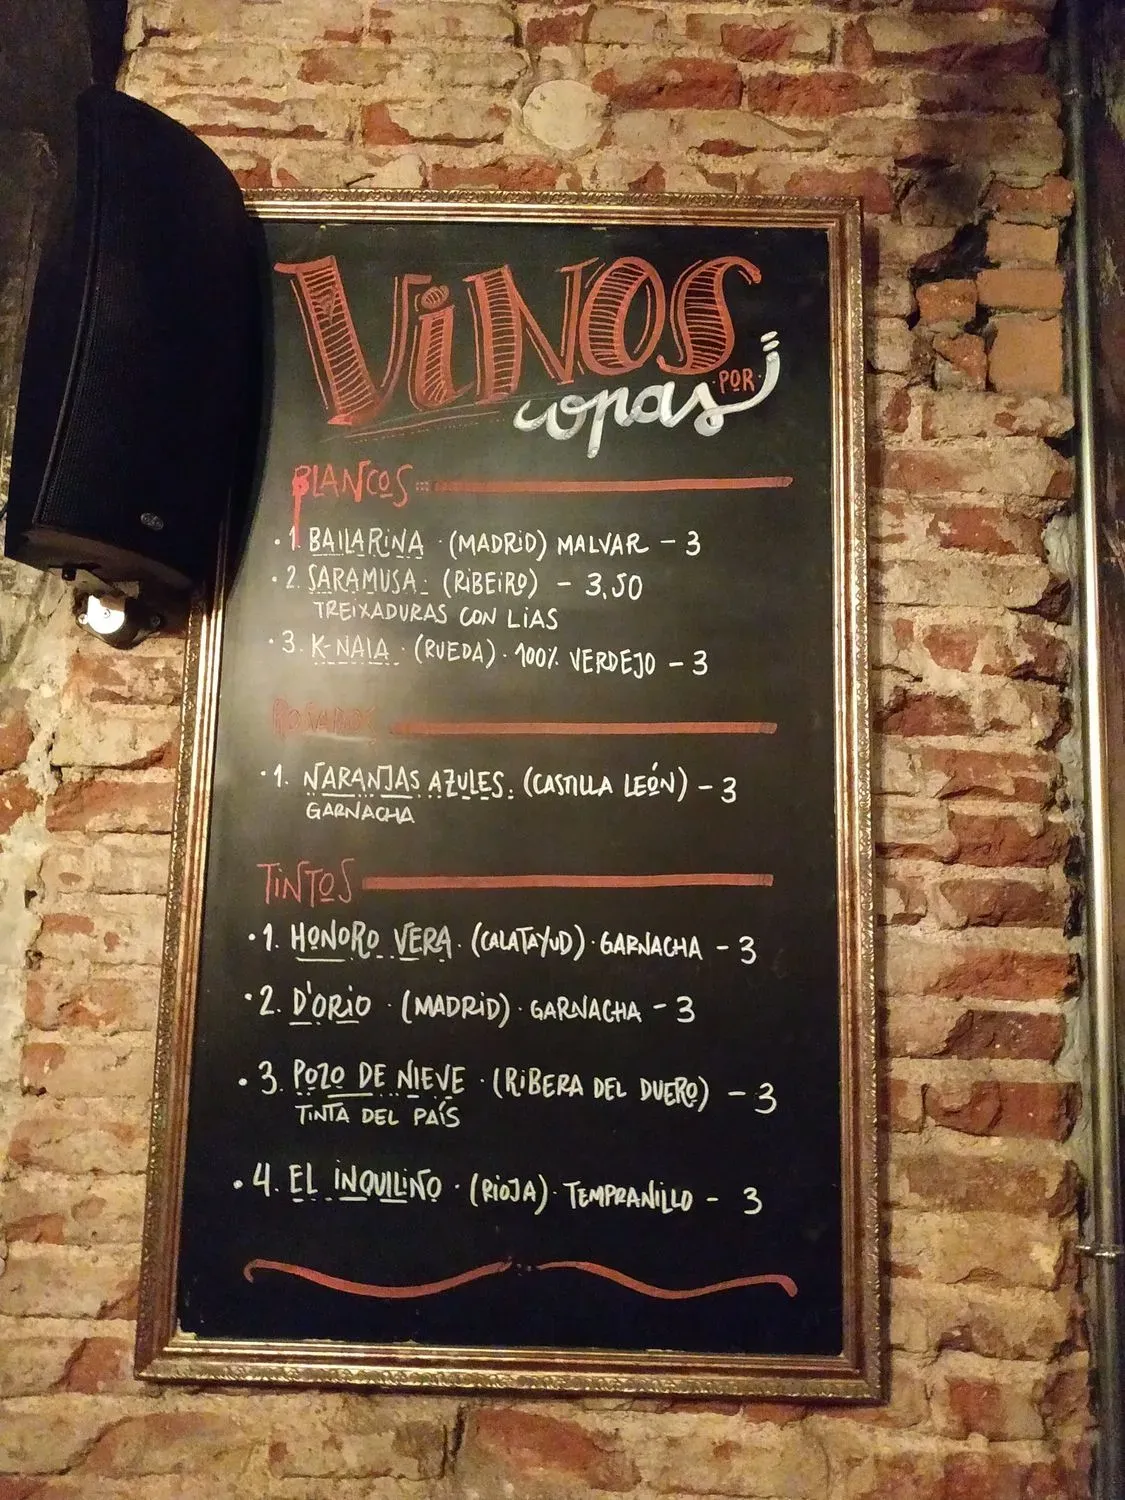 VINOS
POR
copas
BLANCOS
· 1 BAILARINA · (MADRID) MALVAR - 3
· 2. SARAMUSA · (RIBEIRO) - 3,50
TREIXADURAS CON LIAS
· 3. K-NAIA · (RUEDA) · 100% VERDEJO - 3
ROSADOS
· 1. NARANJAS AZULES. (CASTILLA LEÓN) - 3
GARNACHA
TINTOS
· 1. HONORO VERA · (CALATAYUD) · GARNACHA - 3
· 2. D'ORIO · (MADRID) · GARNACHA - 3
· 3. POZO DE NIEVE · (RIBERA DEL DUERO) - 3
TINTA DEL PAÍS
· 4. EL INQUILINO · (RIOJA) · TEMPRANILLO - 3